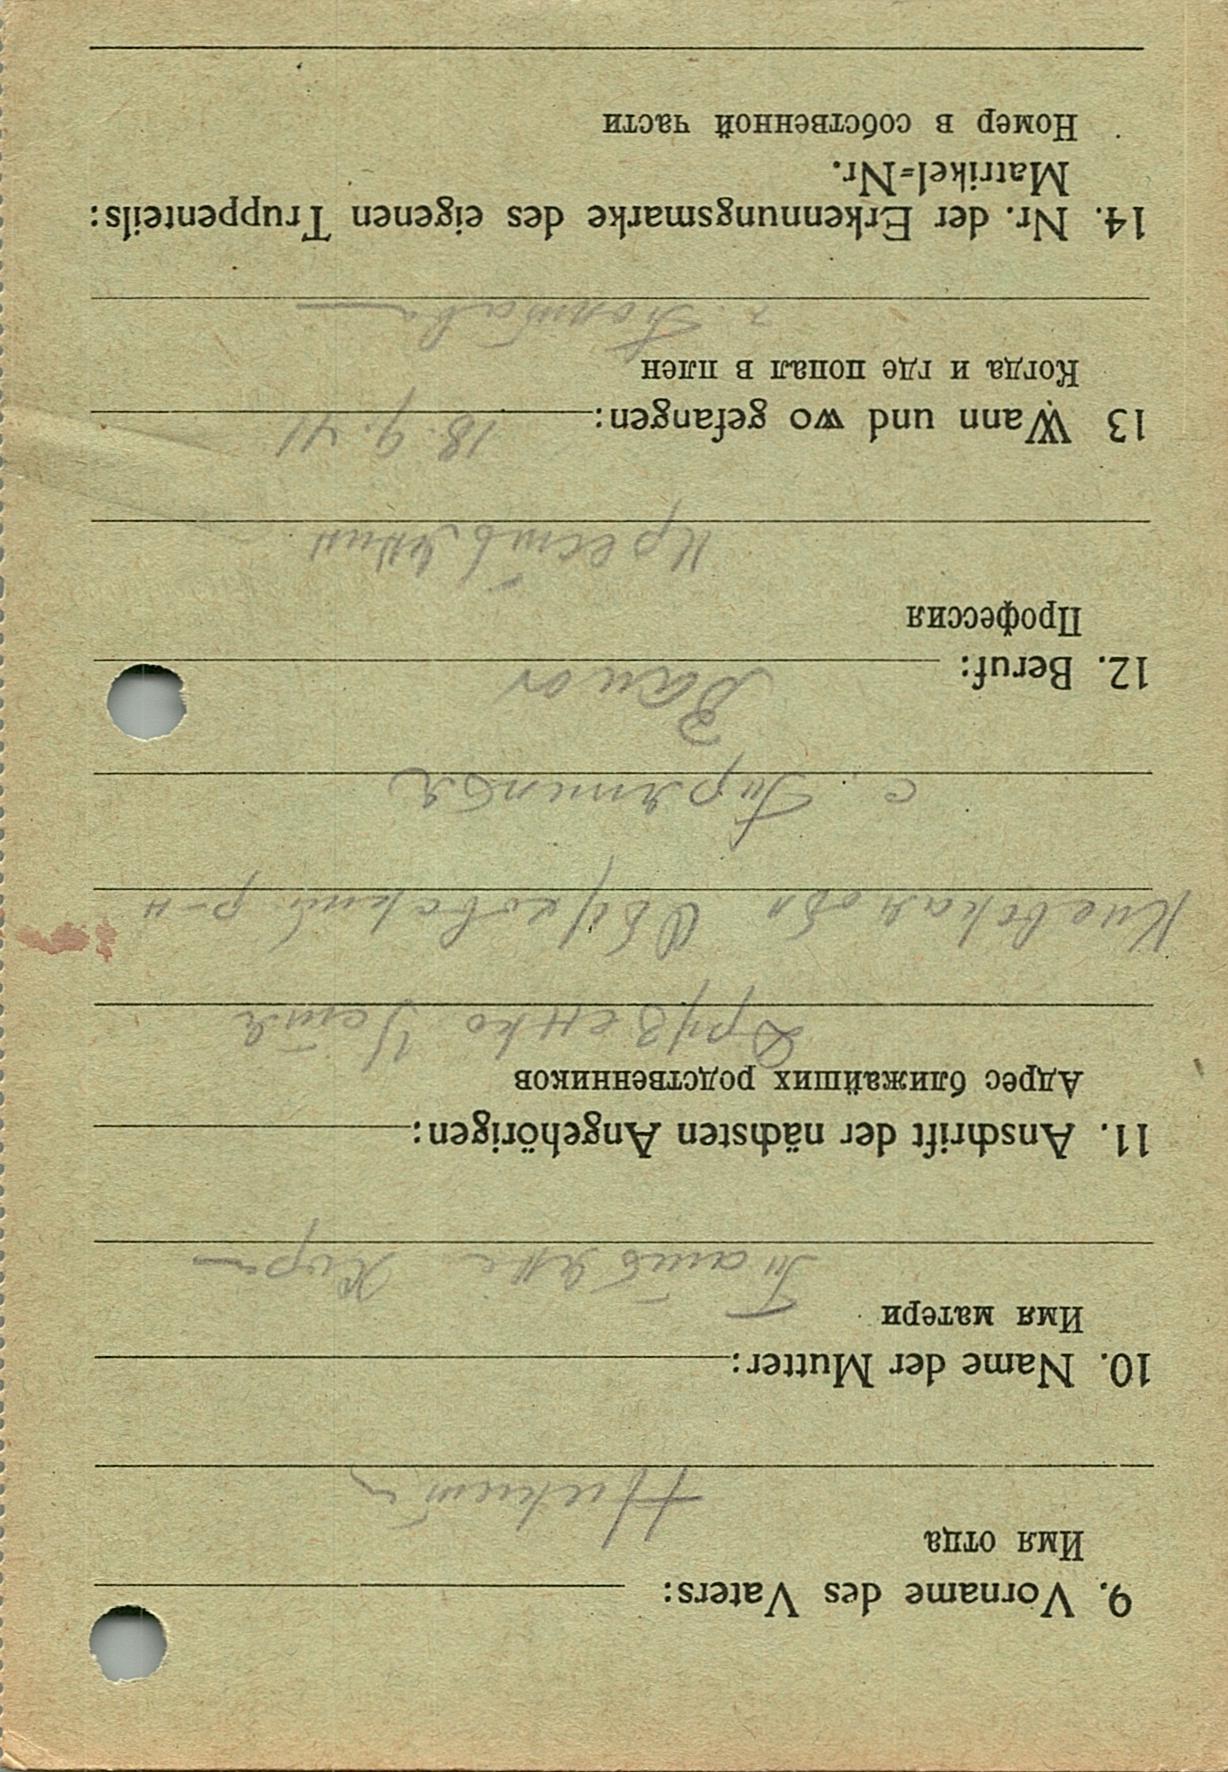 9. Vorname des Vaters:
Имя отца
Никита
10. Name der Mutter:
Имя матери
11. Anschrift der nächsten Angehörigen:
Адрес ближайших родственников
Друзенко
Киевская обл р-н
с.
12. Beruf:
Профессия
13 Wann und wo gefangen:
18.9.41
Когда и где попал в плен
г. Полтава
14. Nr. der Erkennungsmarke des eigenen Truppenteils:
Matrikel=Nr.
Номер в собственной части